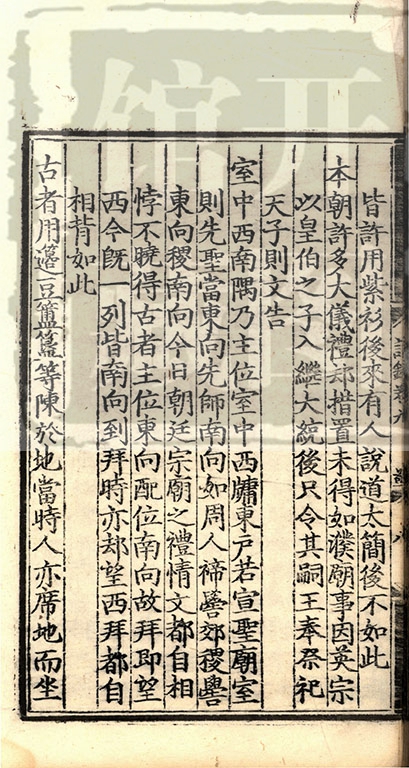 皆許用紫衫後來有人說道太簡後不如此
本朝許多大儀禮却措置未得如濮廟事因英宗
以皇伯之子入繼大統後只令其嗣王奉祭祀
天子則文告
室中西南隅乃主位室中西牖東户若宣聖廟室
則先聖當東向先師南向如周人禘嚳郊稷嚳
東向稷南向今日朝廷宗廟之禮情文都自相
悖不曉得古者主位東向配位南向故拜即望
西今既一列皆南向到拜時亦却望西拜都自
相背如此
古者用籩豆簠簋等陳於地當時人亦席地而坐